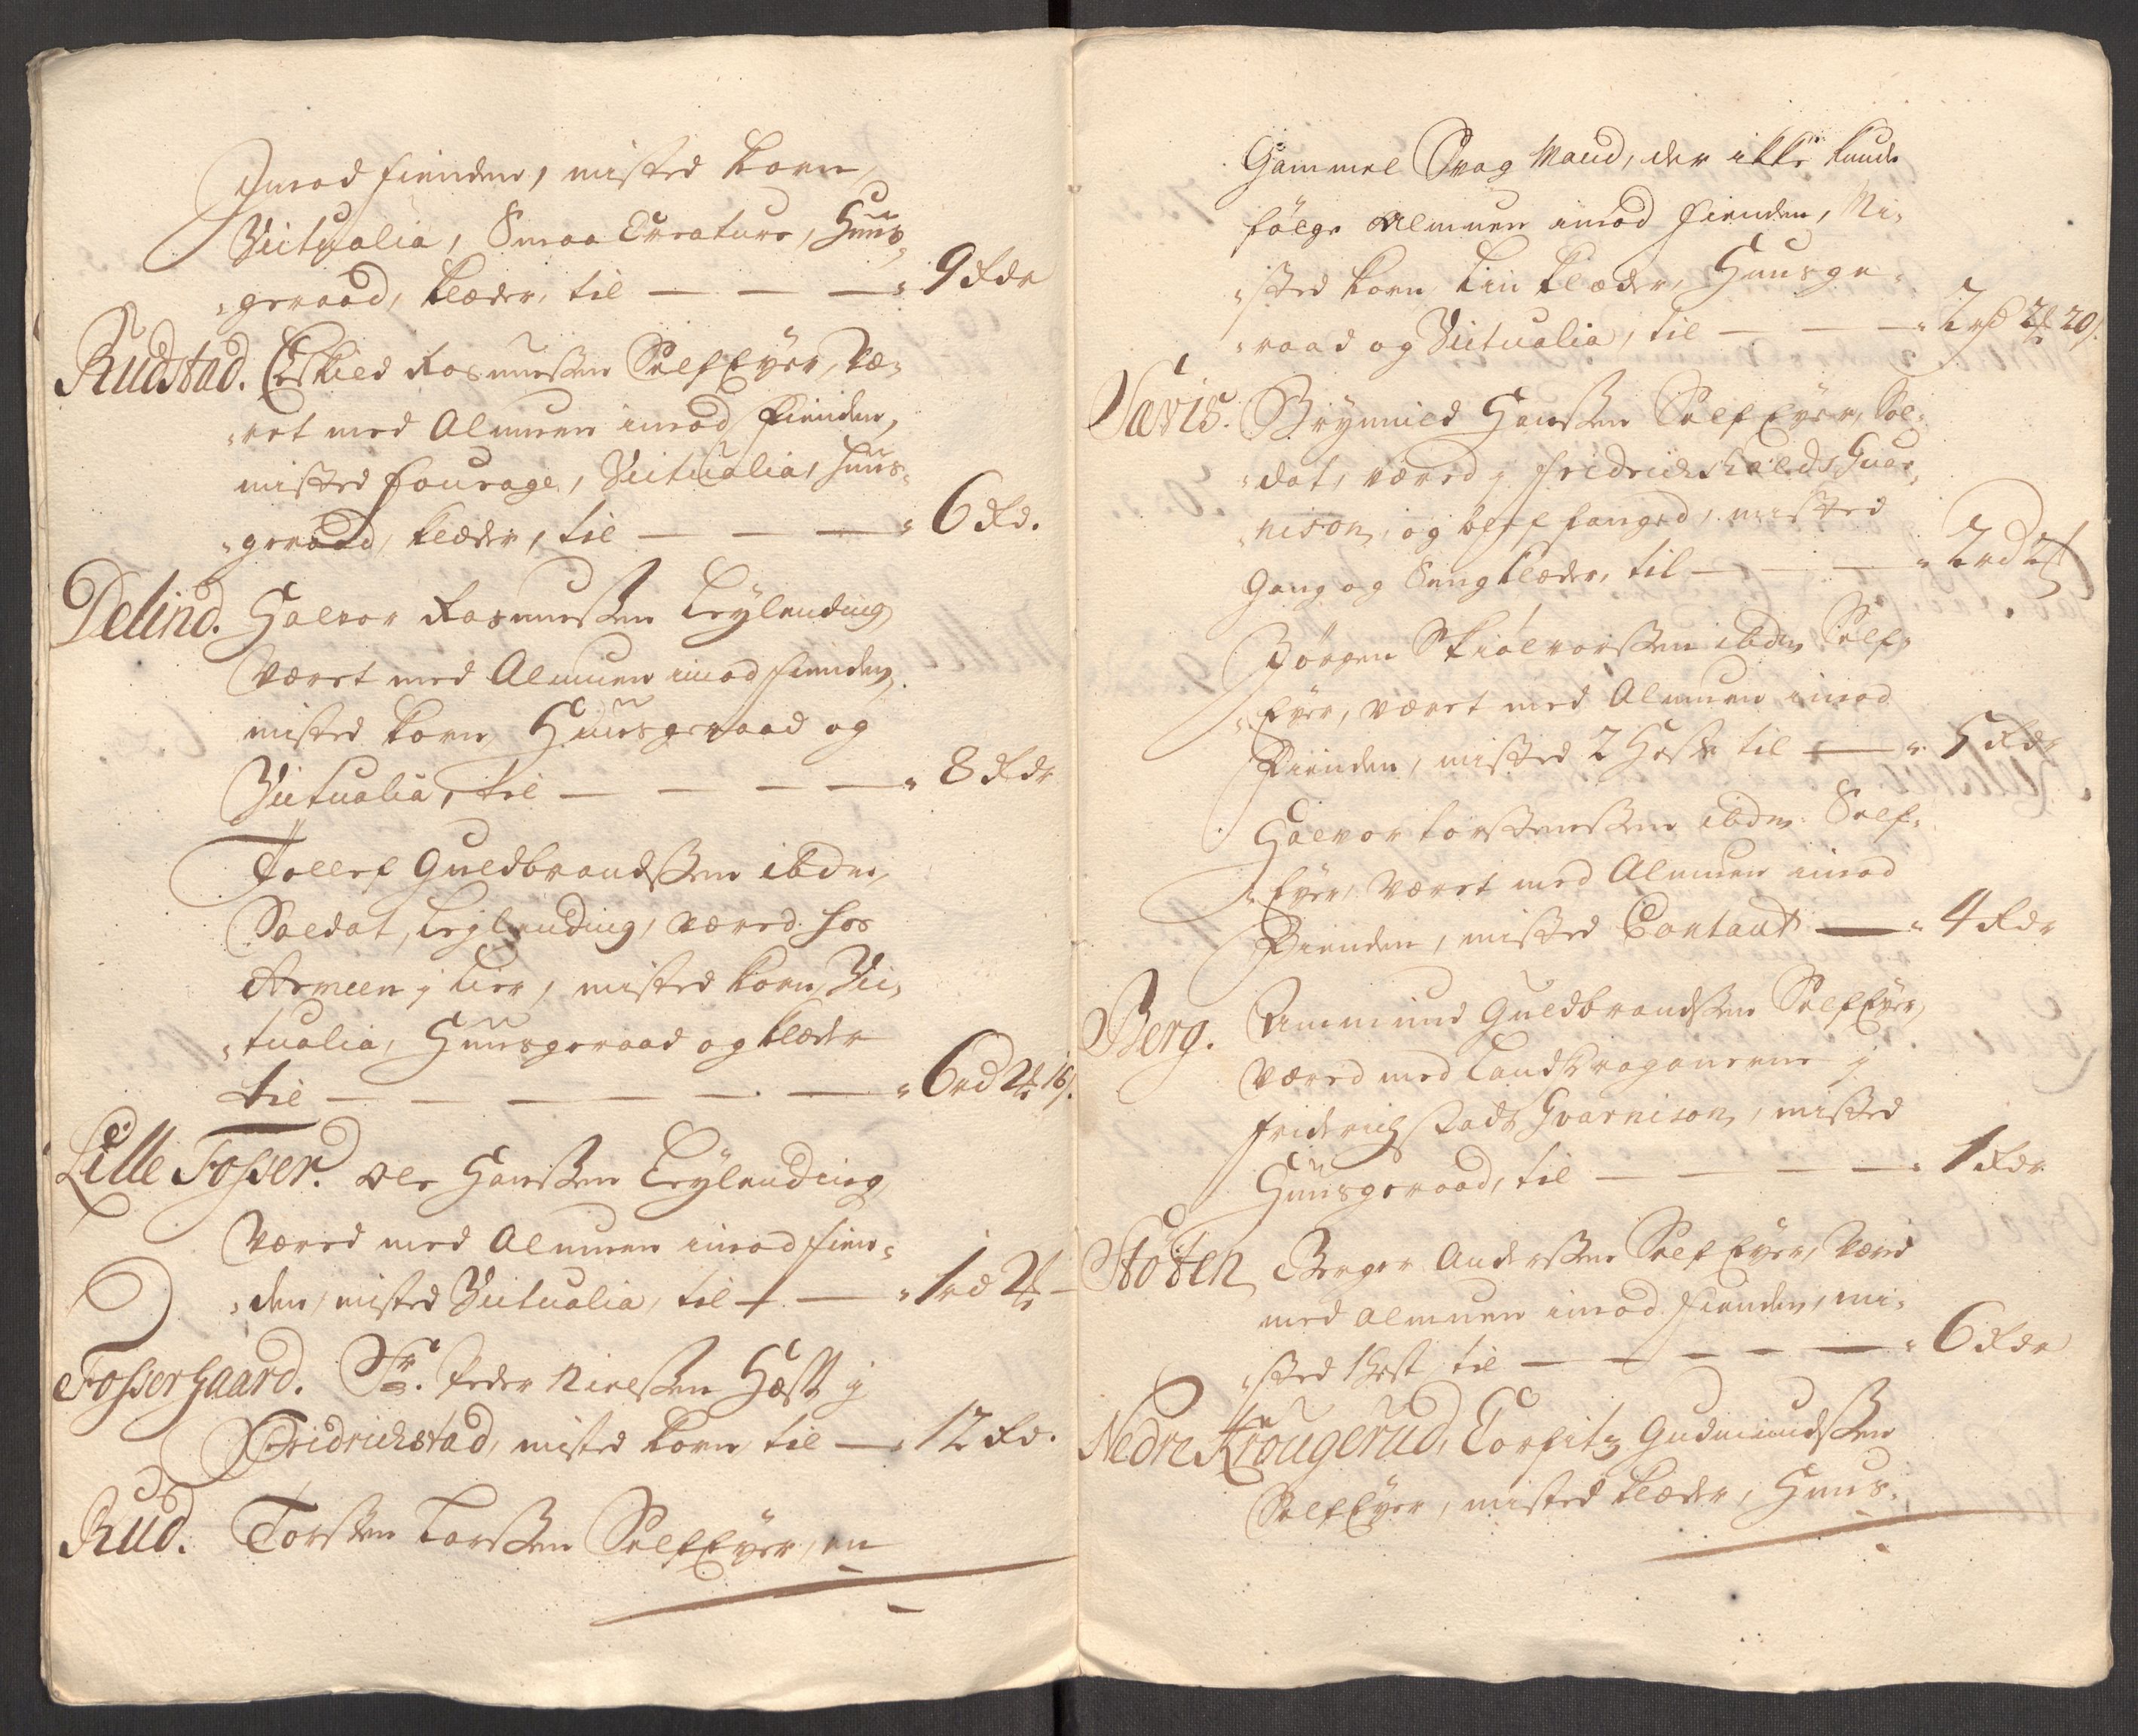 Imod fienden, misted korn,
Victualia, Smaa Creature, Huus,
geraad, klæder, til — — — 9 Rdr
Rudstad. Eskild Rasmussen SelfEyer, Væ,
ret med Almuen imod fienden,
misted fourage, Victualia, huus,
geraad, klæder, til — — — 6 Rd.
Delind. Halvor Rasmussen Leylending
Været med Almuen imod fienden,
misted korn, Huusgeraad og
Victualia, til — — — — 8 Rdr
Tollef Guldbrandssen ibdm,
Soldat, Leylending, væred hos
Armeen j Lier, misted korn, Vic,
tualia, Huusgeraad og klæder
til — — — — — — 6 rd 2 16 s.
Lille Fosser. Ole Hanssen Leylending
Væred med Almuen imod fien,
den, misted Victualia, til — — 1 rd 2 —
Fossergaard. Sr. Peder Nielssen Hæst j
Fridrichstad, misted korn til — 12 Rd.
Rud. Torsten Larssen SelfEyer, en
Gammel Svag Mand, der ikke kunde
følge Almuen imod fienden, Mi,
sted korn, Lin klæder, Huusge,
raad og Victualia, til — — — 2 rd 2 20 s.
Navis. Brynnild Hanssen SelfEyer, Sol,
dat, væred j Fridrichshalds Guar,
nison, og blef fanged, misted
Gang og Sengklæder, til — — — 2 rd 2
Jörgen Skiolvorssen ibdm Self,
Eyer, været med Almuen imod
Fienden, misted 2 Heste til — 5 Rdr
Halvor torstenssen ibdm Self,
Eyer, Været med Almuen imod
Fienden, misted Contant — 4 Rdr
Berg. Ammund Guldbrandssen SelfEyer,
Væred med Landdragonerne j
Friderichstads Gvarnison, misted
Huusgeraad, til — — — — 1 Rdr
Stöten Berger Anderssen SelfEyer, Værid
med Almuen imod fienden, mi,
sted 1 Hest til — — — — — 6 Rdr
Nedre Krougerud, Torfits Gudmundssen
SelfEyer, misted klæder, Huus,